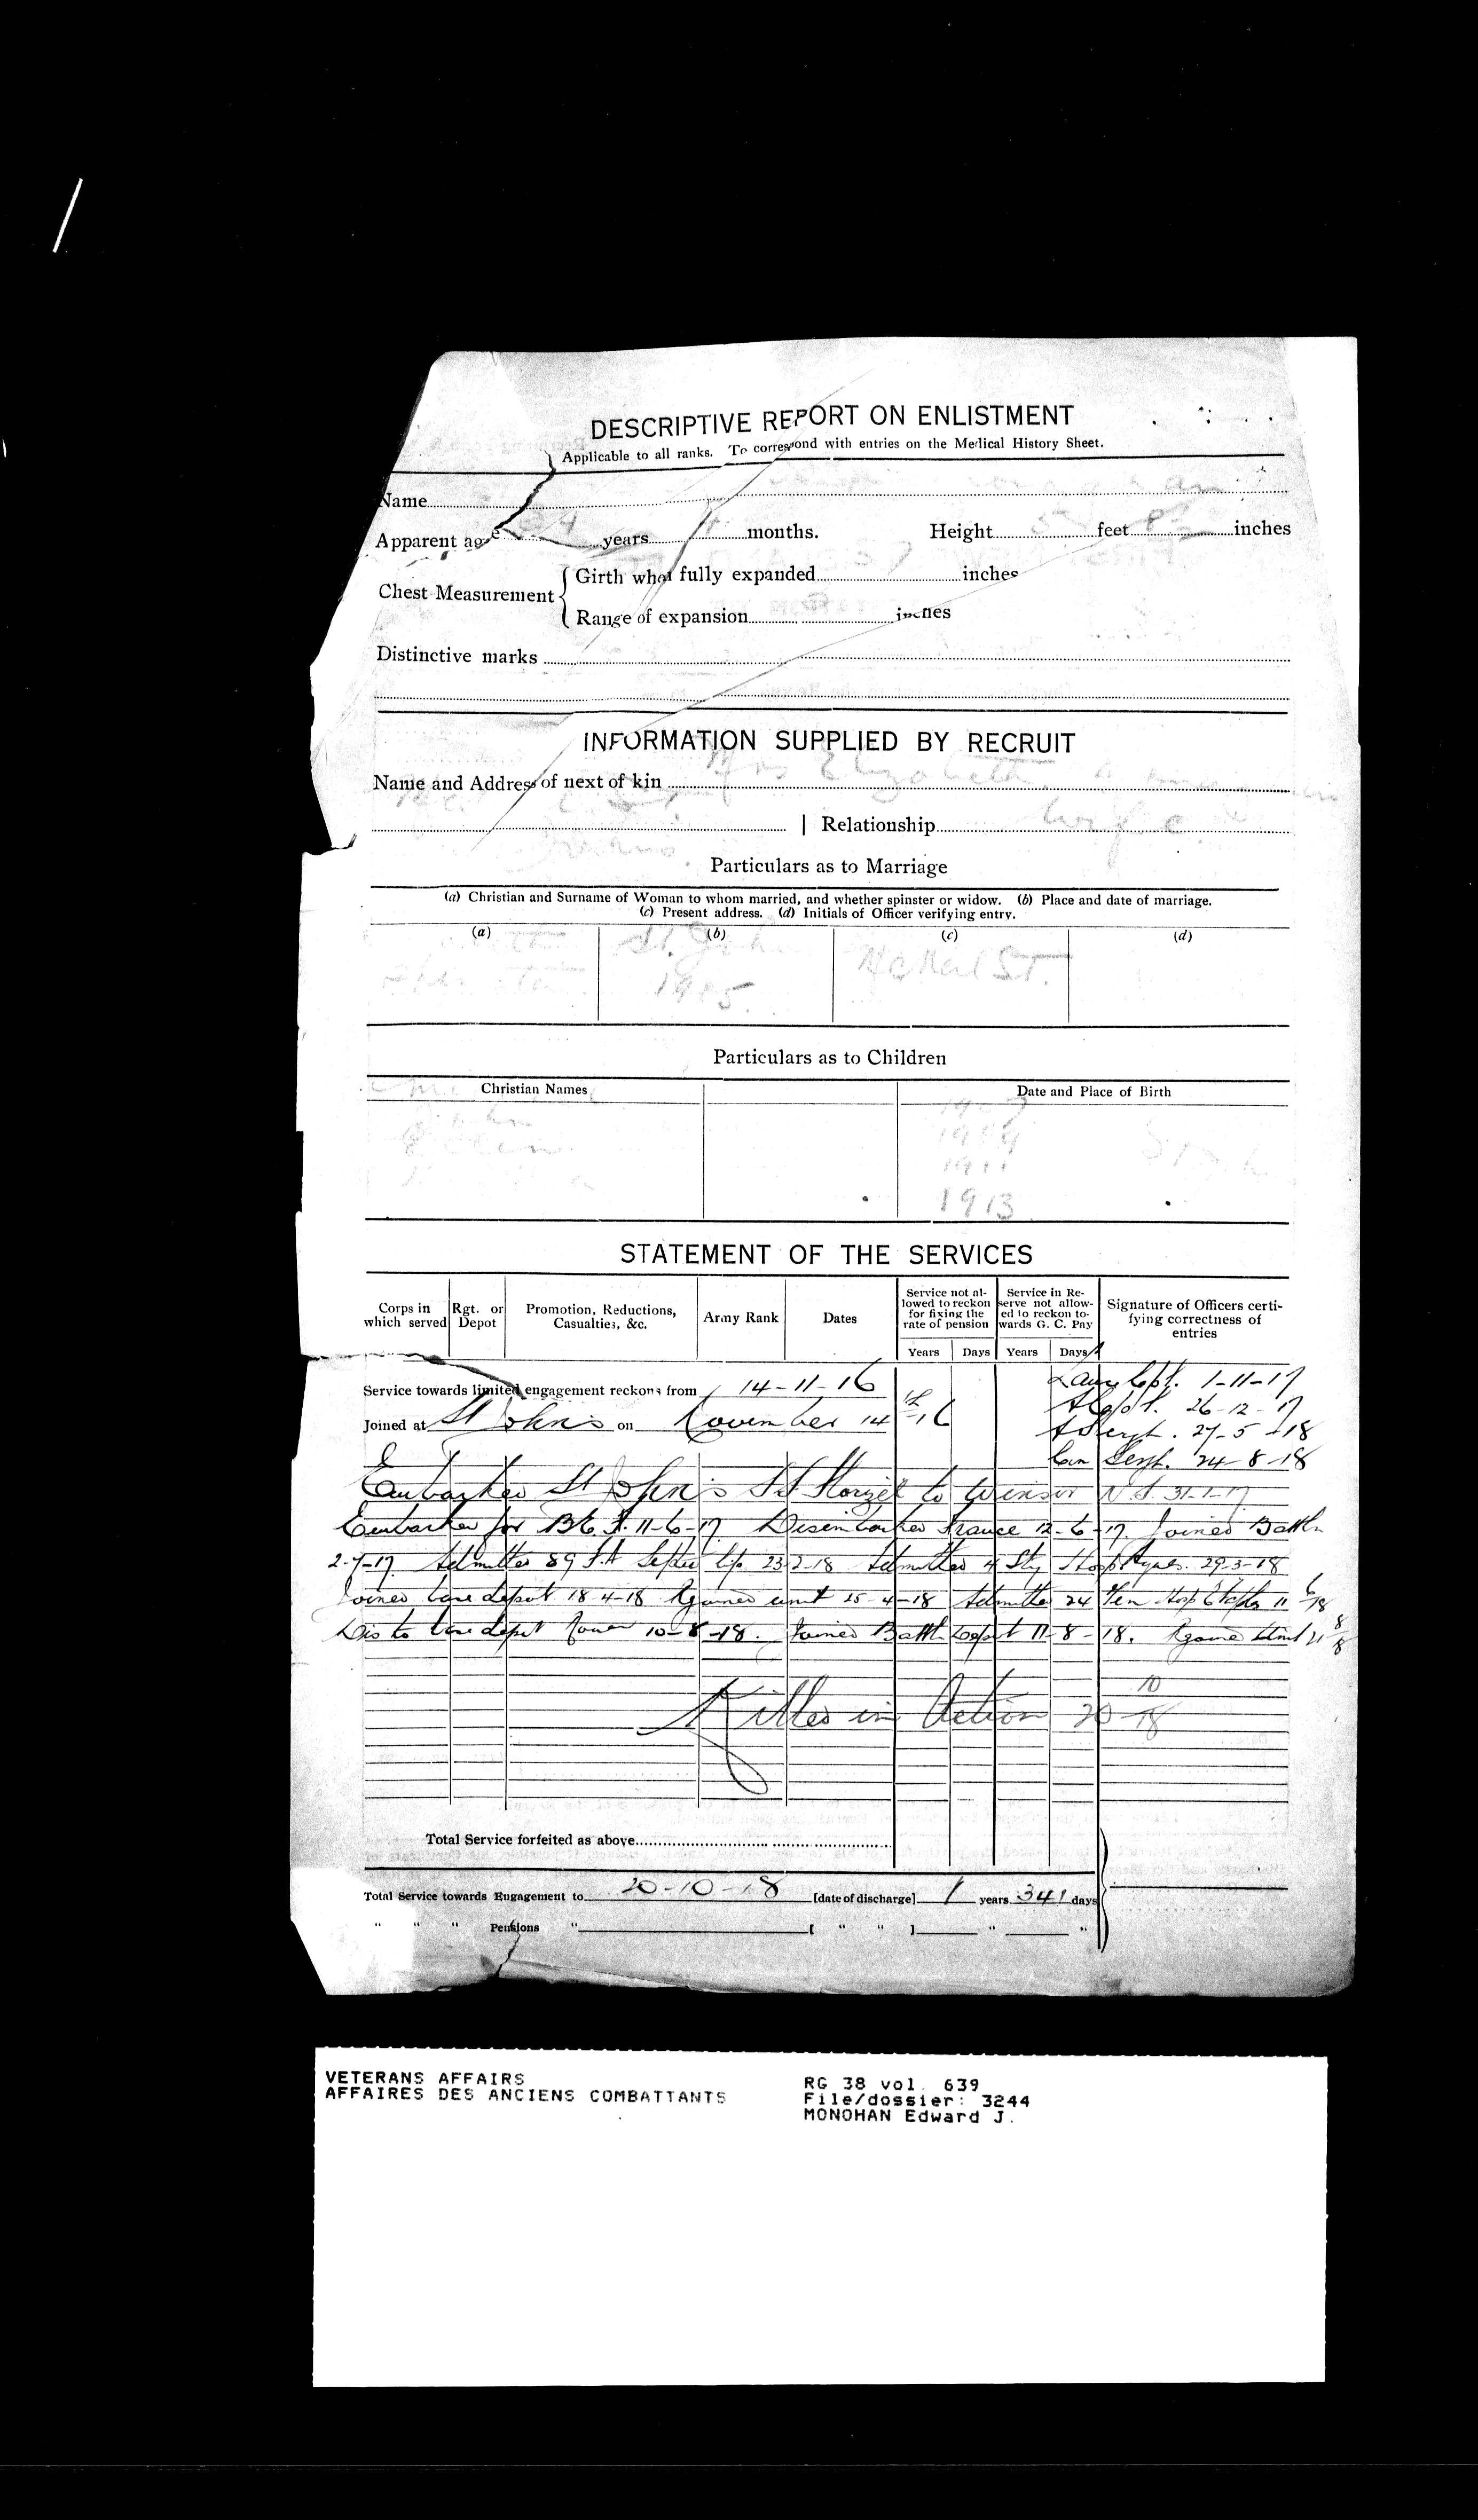 DESCRIPTIVE REPORT ON ENLISTMENT
Applicable to all ranks. To correspond with entries on the Medical History Sheet.
Name
Apparent age 34 years 4 months. Height 5 feet 8½ inches
Chest Measurement { Girth when fully expanded inches
Range of expansion inches
Distinctive marks
INFORMATION SUPPLIED BY RECRUIT
Name and Address of next of kin Mrs Elizabeth
| Relationship wife
Particulars as to Marriage
(a) Christian and Surname of Woman to whom married, and whether spinster or widow. (b) Place and date of marriage.
(c) Present address. (d) Initials of Officer verifying entry.
(a) (b) (c) (d)
St. John
1905. St.
Particulars as to Children
Christian Names Date and Place of Birth
John
1911
1913
STATEMENT OF THE SERVICES
Corps in which served Rgt. or Depot Promotion, Reductions, Casualties, &c. Army Rank Dates Service not allowed to reckon for fixing the rate of pension Service in Reserve not allowed to reckon towards G. C. Pay Signature of Officers certifying correctness of entries
Years Days Years Days
Lance Cpl. 1-11-17
Service towards limited engagement reckons from 14-11-16
A Cpl. 26-12-17
Joined at St John's on November 14th -16
A Sergt. 27-5-18
Con Sergt. 24-8-18
Embarked St John's S.S. Florizel to Winsor N.S. 31-1-17
Embarked for B.E.F. 11-6-17 Disembarked France 12-6-17. Joined Battln
2-7-17. Admitted 89 F.A. Septic 23-2-18 Admitted 4 Sty Hosp 29-3-18
Joined base depot 18-4-18 Rejoined unit 25-4-18 Admitted 24 Gen Hosp Etaples 11 6/18
Dis to base depot Rouen 10-8-18. Joined Battln Depot 11-8-18. Rejoined Unit 21 8/8
Killed in Action 20 10/18
Total Service forfeited as above
Total Service towards Engagement to 20-10-18 [date of discharge] 1 years 341 days
" " " Pensions " [ " " ] " "
VETERANS AFFAIRS
AFFAIRES DES ANCIENS COMBATTANTS
RG 38 vol. 639
File/dossier: 3244
MONOHAN Edward J.